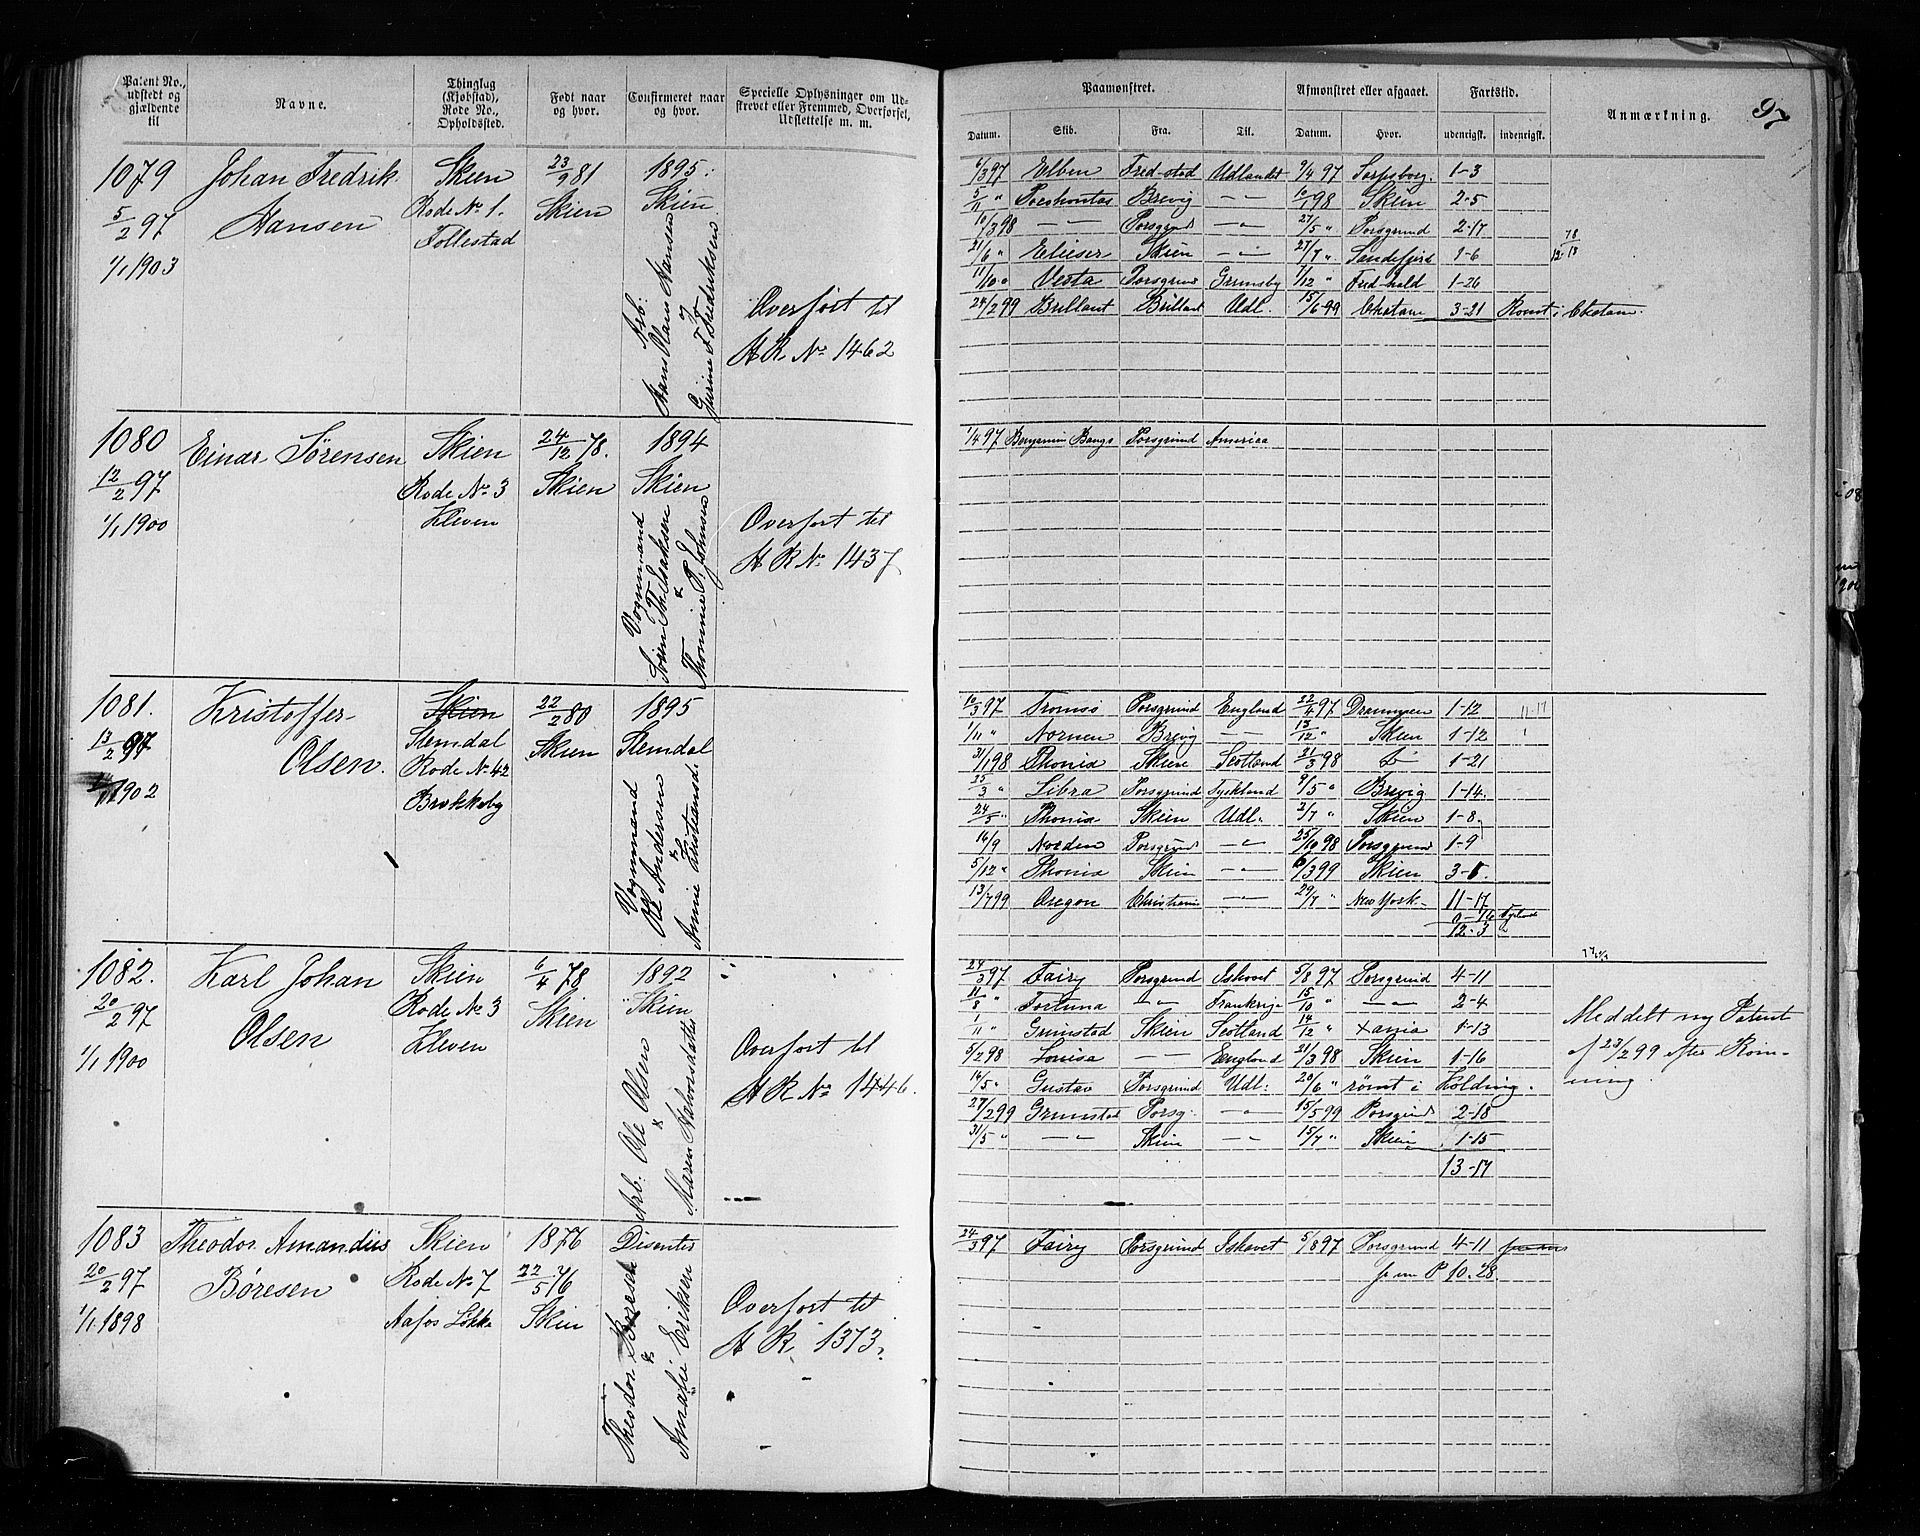 Patent No., udstedt og gjældende til
Navne.
Thinglag (Kjøbstad), Rode No., Opholdsted.
Født naar og hvor.
Confirmeret naar og hvor.
Specielle Oplysninger om Udskrevet eller Fremmed, Overførsel, Udslettelse m. m.
Paamønstret.
Afmønstret eller afgaaet.
Fartstid.
Anmærkning.
97
Datum.
Skib.
Fra.
Til.
Datum.
Hvor.
udenrigsk.
indenrigsk.
1079
5/2 97
1/1 1903
Johan Fredrik
Hansen
Skien
Rode No 1.
Follestad
23/9 81
Skien
1895
Skien
Arb:
Hans Olaus Hansen
Gurine F. Fredriksen
Overført til
H R No 1462
6/3 97 Elben Fred-stad Udlandet 9/4 97 Sarpsborg. 1-3
5/11 " Brevig 98 Skien 2-5
10/3 98 Porsgrund 27/5 " Porsgrund 2-17
21/6 " Elieser Skien 27/7 " Sandefjord 1-6
11/10 Vesta Porsgrund Grimsby 7/12 " Fred-hald 1-26
24/2 99 Brillant Brillant Udl. 15/6 99 3-21 Rømt i
1080
12/2 97
1/1 1900
Einar Sørensen
Skien
Rode No 3
Kleven
24/12 78.
Skien
1894
Skien
Vognmand
Søren Th. Isaksen
&
Thomine P. Johnsen
Overført til
H R No 1437
1/4 97 Benjamin Bangs Porsgrund America
1081.
13/2 97
1902
Kristoffer
Olsen.
Skien
Slemdal
Rode No 42
Brekkeby
22/2 80
Skien
1895
Slemdal
Vognmand
Ole Andersen
&
Anne Kristiansd.
10/3 97 Tromsø Porsgrund England 22/4 97 Drammen 1-12
1/11 " Nornen Brevig 13/12 " Skien 1-12
31/1 98 Phonix Skien Scotland 21/3 98 1-21
25/3 " Libra Porsgrund Tyskland 9/5 " Brevig 1-14.
24/5 " Phonix Skien Udl. 2/7 " Skien 1-8.
16/9 Norden Porsgrund 25/10 98 Porsgrund 1-9
5/12 " Phonix Skien 6/3 99 Skien
13/7 99 Oregon Christiania 29/7 " New York. 11-17
12-3
1082.
20/2 97
1/1 1900
Karl Johan
Olsen
Skien
Rode No 3
Kleven
6/4 78
Skien
1892
Skien
Arb. Ole Olsen
&
Maren Halvorsdatter
Overført til
H R No 1446.
24/3 97 Fairy Porsgrund Ishavet 5/8 97 Porsgrund 4-11
11/8 " Fortuna Frankrige 15/10 " 2-4
1/11 " Grimstad Skien Scotland 14/12 " Xania 1-13
5/2 98 Louisa England 21/3 98 Skien 1-16
14/5 " Gustav Porsgrund Udl: 20/6 " rømt i Kolding.
27/2 99 Grimstad Porsg. 15/5 99 Porsgrund 2-18
31/5 " Skien 15/7 " Skien 1-15
13-17
Meddelt ny Patent
af 23/2 99 efter Røm-
ning.
1083
20/2 97
1/1 1898
Theodor Amandus
Børesen
Skien
Rode No 7
Aafos Løkke
1876
22/5 76
Skien
Disenter
Theodor Børesen
&
Amalie Eriksen
Overført til
H R 1373.
24/3 97 Fairy Porsgrund Ishavet 5/8 97 Porsgrund 4-11
10. 28.